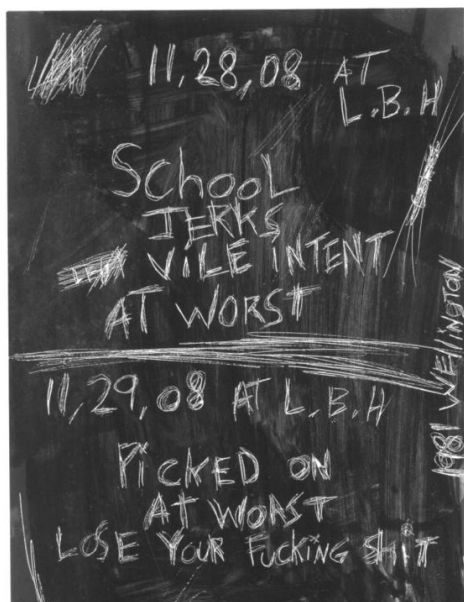 11,28,08 AT
L.B.H
SCHOOL
JERKS
VILE INTENT
AT WORST
11,29,08 AT L.B.H
PICKED ON
AT WORST
LOSE YOUR FUCKING SHIT
1981 WELLINGTON